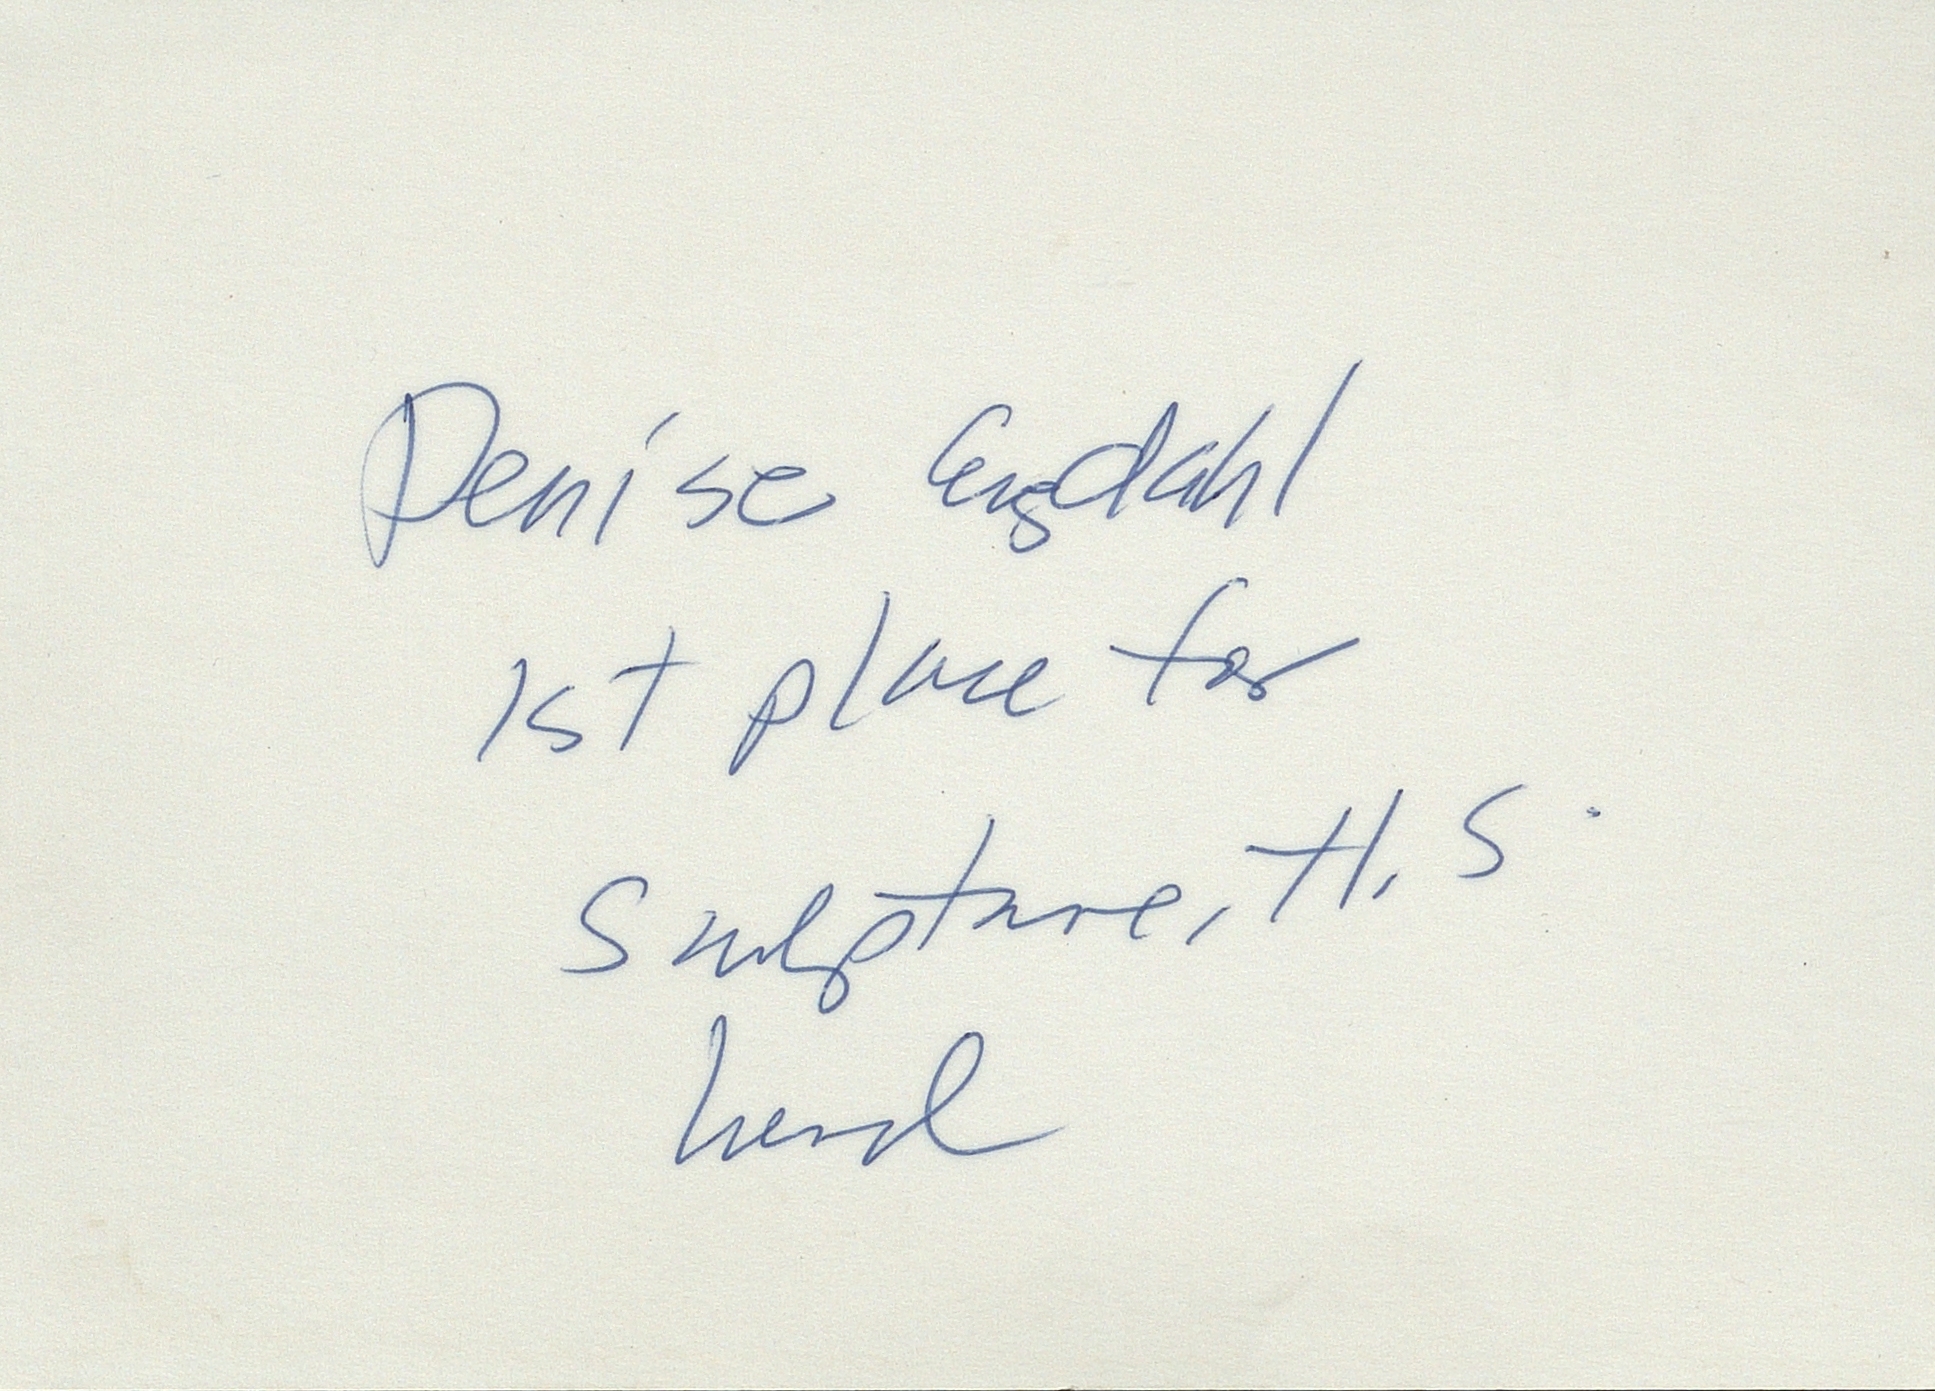 Denise Engdahl
1st place for
Sculpture, H.S.
level